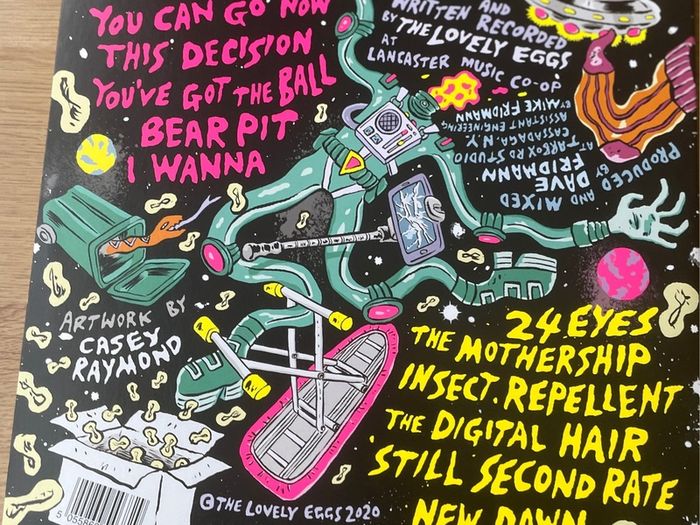 YOU CAN GO NOW
THIS DECISION
YOU'VE GOT THE BALL
BEAR PIT
I WANNA
WRITTEN AND
AND RECORDED
BY THE LOVELY EGGS
AT
LANCASTER MUSIC CO-OP
PRODUCED AND MIXED
BY DAVE
FRIDMANN
AT TARBOX RD STUDIO
CASSADAGA. N.Y.
ASSISTANT ENGINEERING
BY MIKE FRIDMANN
ARTWORK BY
CASEY
RAYMOND
24 EYES
THE MOTHERSHIP
INSECT REPELLENT
THE DIGITAL HAIR
STILL SECOND RATE
NEW DAWN
© THE LOVELY EGGS 2020